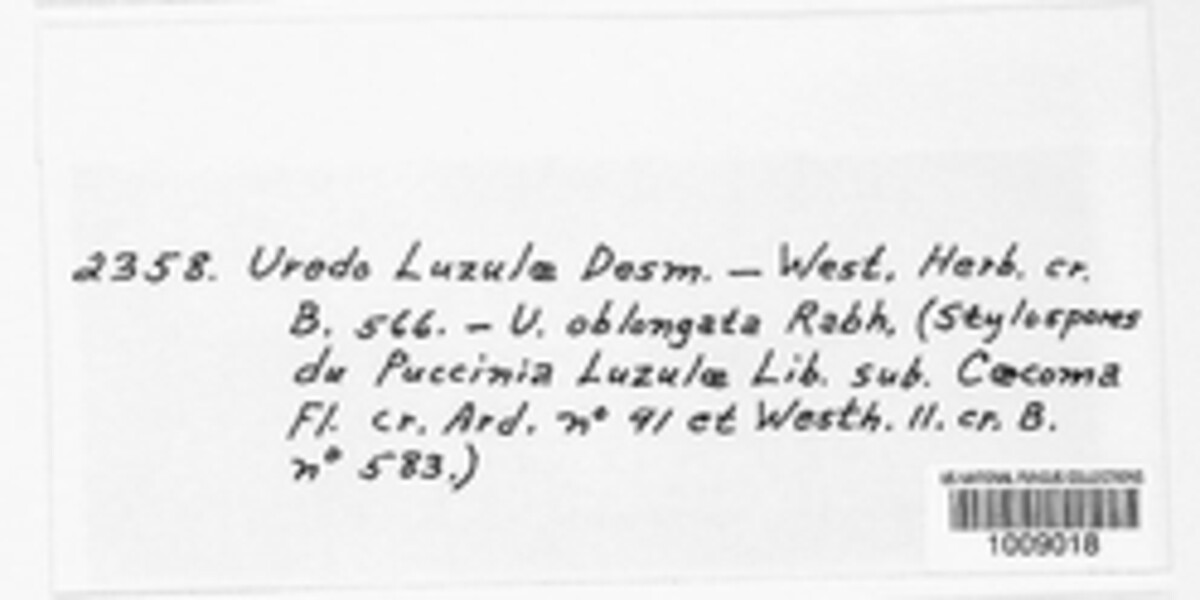 2358. Uredo Luzulæ Desm. — West. Herb. cr.
B. 566. — U. oblongata Rabh. (Stylospores
du Puccinia Luzulæ Lib. sub. Cæcoma
Fl. cr. Ard. nº 91 et Westh. 11. cr. B.
nº 583.)
US NATIONAL FUNGUS COLLECTIONS
1009018